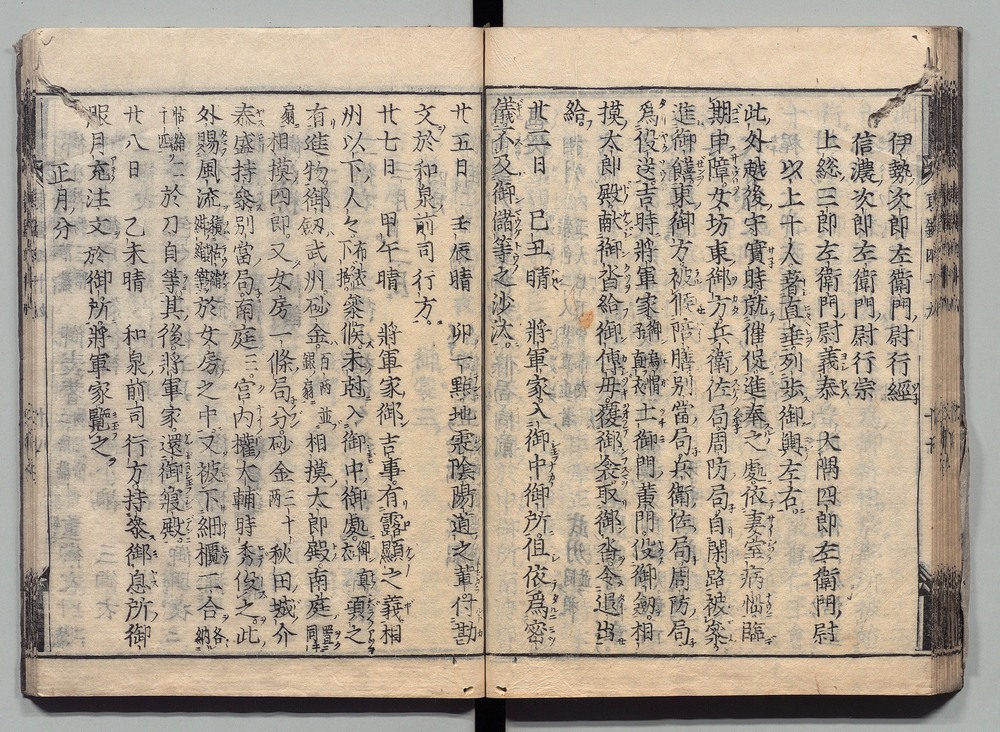 伊勢次郎左衛門尉行經
信濃次郎左衛門尉行宗
上総三郎左衛門尉義泰　大隅四郎左衛門尉
以上十人著直垂列歩御輿左右。
此外越後守實時就催促進奉之處依妻室病惱臨
期申障女坊東御方兵衛佐局周防局自閑路被參
進御饍東御方被候陪膳別當局兵衛佐局周防局
為役送吉時將軍家 御烏帽 土御門黄門役御劔相
摸太郎殿献御沓給御傅母覆御衾取御沓令退出
給。
廿二日　己丑晴　將軍家入御中御所但依為密
儀不及御儲等之沙汰。
廿五日　壬辰晴　卯一點地震陰陽道之輩付勘
文於和泉前司行方。
廿七日　甲午晴　將軍家御吉事有露顯之義相
州以下人々布衣下括參候未尅入御中御處御衣直頂之
有進物御劔武州砂金百両並銀扇相摸太郎殿南庭同
扇相摸四郎又女房一條局分砂金二十両秋田城介
泰盛持參別當局南庭三宮内權大輔時秀俊之此
外賜風流於女房之中又被下細櫃二合各納
二於刀自等其後將軍家還御寝殿
廿八日　乙未晴　和泉前司行方持參御息所御
服月充注文於御所將軍家覽之
正月分